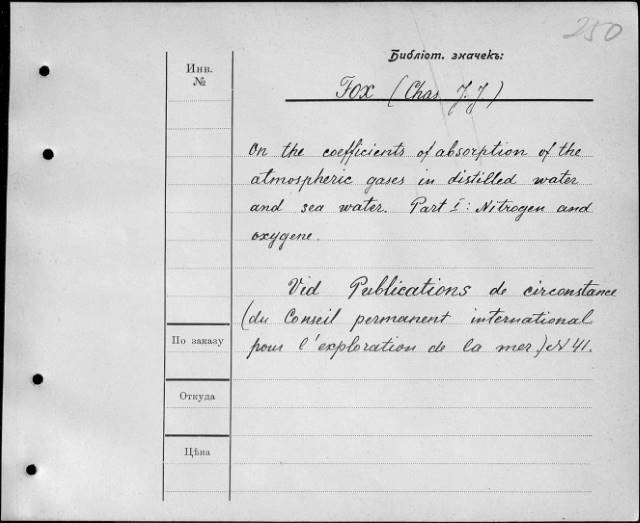 250
Библіот. значекъ:
Инв.
№
Fox (Chas. J. J.)
On the coefficients of absorption of the
atmospheric gases in distilled water
and sea water. Part I: Nitrogen and
oxygene.
Vid Publications de circonstance
(du Conseil permanent international
pour l'exploration de la mer) N 41.
По заказу
Откуда
Цѣна